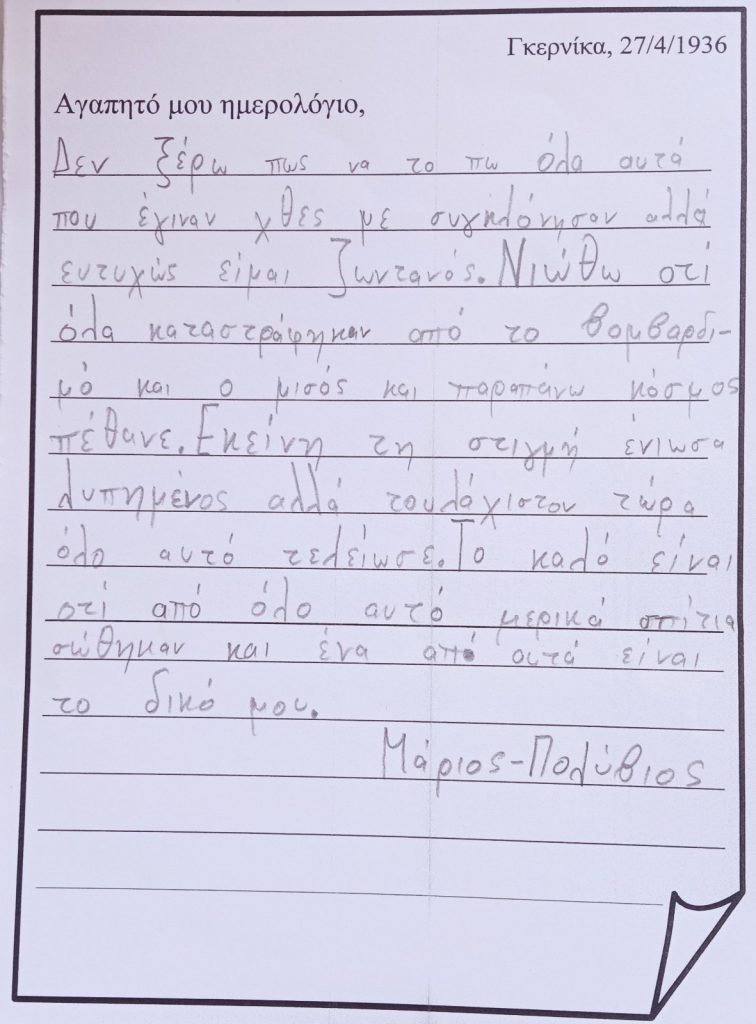 Γκερνίκα, 27/4/1936
Αγαπητό μου ημερολόγιο,
Δεν ξέρω πως να το πω όλα αυτά
που έγιναν χθες με συγκλόνησαν αλλά
ευτυχώς είμαι ζωντανός. Νιώθω οτί
όλα καταστράφηκαν από το βομβαρδι-
μό και ο μισός και παραπάνω κόσμος
πέθανε. Εκείνη τη στιγμή ένιωσα
λυπημένος αλλά τουλάχιστον τώρα
όλο αυτό τελείωσε. Το καλό είναι
οτί από όλο αυτό μερικά σπίτια
σώθηκαν και ένα από αυτά είναι
το δικό μου.
Μάριος-Πολύβιος